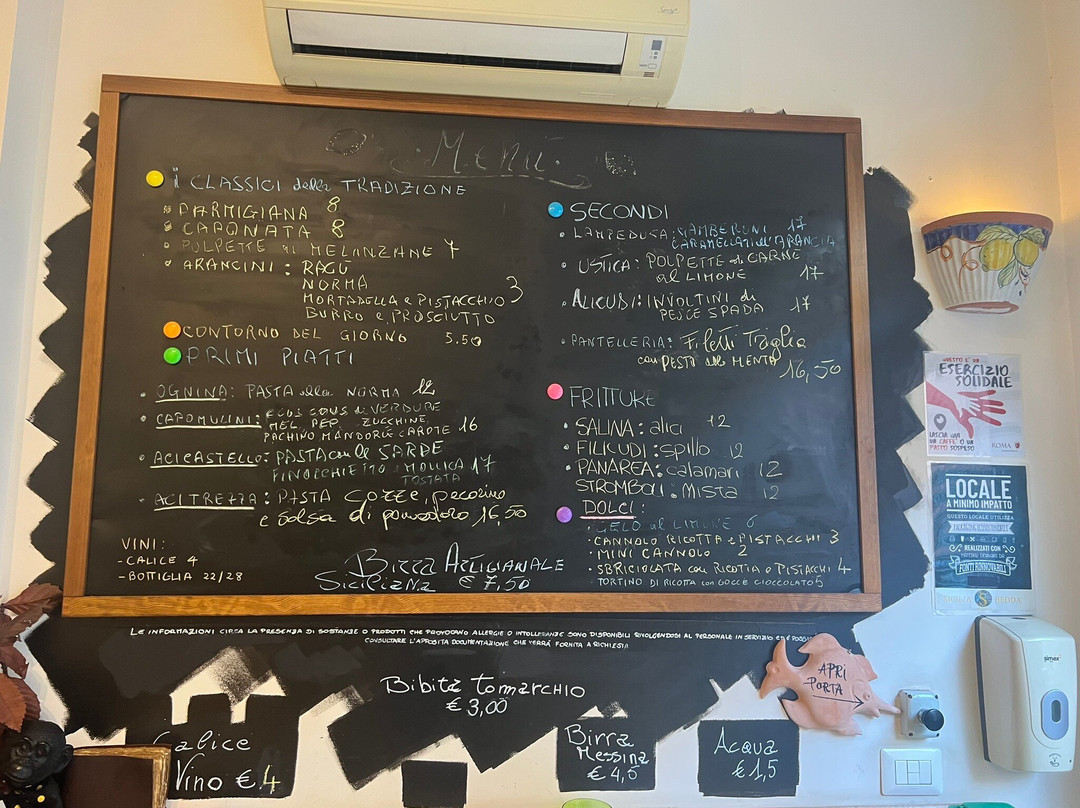 Menù
i CLASSICI della TRADIZIONE
PARMIGIANA 8
CAPONATA 8
POLPETTE di MELANZANE 7
ARANCINI: RAGÙ
NORMA
MORTADELLA e PISTACCHIO 3
BURRO e PROSCIUTTO
CONTORNO DEL GIORNO 5.50
PRIMI PIATTI
OGNINA: PASTA alla NORMA 12
CAPOMULINI: COUS COUS di VERDURE
MEL, PEP, ZUCCHINE,
PACHINO MANDORLE CAROTE 16
ACICASTELLO: PASTA con le SARDE
FINOCCHIETTO e MOLLICA 17
TOSTATA
ACITREZZA: PASTA COZZE, pecorino
e salsa di pomodoro 16,50
VINI:
- CALICE 4
- BOTTIGLIA 22/28
Birra ARTIGIANALE
SICILIANA € 7,50
SECONDI
LAMPEDUSA: GAMBERONI 17
CARAMELLATI all'ARANCIA
USTICA: POLPETTE di CARNE
al LIMONE 17
ALICUDI: INVOLTINI di
PESCE SPADA 17
PANTELLERIA: Filetti Triglia
con PESTO alla MENTA 16,50
FRITTURE
SALINA: alici 12
FILICUDI: spillo 12
PANAREA: calamari 12
STROMBOLI: Mista 12
DOLCI:
GELO al LIMONE 6
CANNOLO RICOTTA e PISTACCHI 3
MINI CANNOLO 2
SBRICIOLATA con RICOTTA e PISTACCHI 4
TORTINO DI RICOTTA con GOCCE CIOCCOLATO 5
LE INFORMAZIONI CIRCA LA PRESENZA DI SOSTANZE O PRODOTTI CHE PROVOCANO ALLERGIE O INTOLLERANZE SONO DISPONIBILI RIVOLGENDOSI AL PERSONALE IN SERVIZIO ED È
CONSULTARE L'APPOSITA DOCUMENTAZIONE CHE VERRÀ FORNITA A RICHIESTA
Bibita Tomarchio
€ 3,00
Calice
Vino € 4
Birra
Messina
€ 4,5
Acqua
€ 1,5
APRI
PORTA
QUESTO È UN
ESERCIZIO
SOLIDALE
LASCIA QUI
UN CAFFÈ O UN
PASTO SOSPESO
ROMA
LOCALE
A MINIMO IMPATTO
QUESTO LOCALE UTILIZZA
REALIZZATI CON
FONTI RINNOVABILI